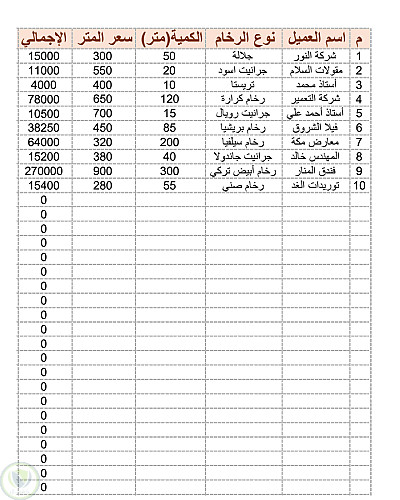 م اسم العميل نوع الرخام الكمية(متر) سعر المتر الإجمالي
1 شركة النور جلالة 50 300 15000
2 مقولات السلام جرانيت اسود 20 550 11000
3 أستاذ محمد تريستا 10 400 4000
4 شركة التعمير رخام كرارة 120 650 78000
5 أستاذ أحمد علي جرانيت رويال 15 700 10500
6 فيلا الشروق رخام بريشيا 85 450 38250
7 معارض مكة رخام سيلفيا 200 320 64000
8 المهندس خالد جرانيت جاندولا 40 380 15200
9 فندق المنار رخام أبيض تركي 300 900 270000
10 توريدات الغد رخام صني 55 280 15400
0
0
0
0
0
0
0
0
0
0
0
0
0
0
0
0
0
0
0
0
0